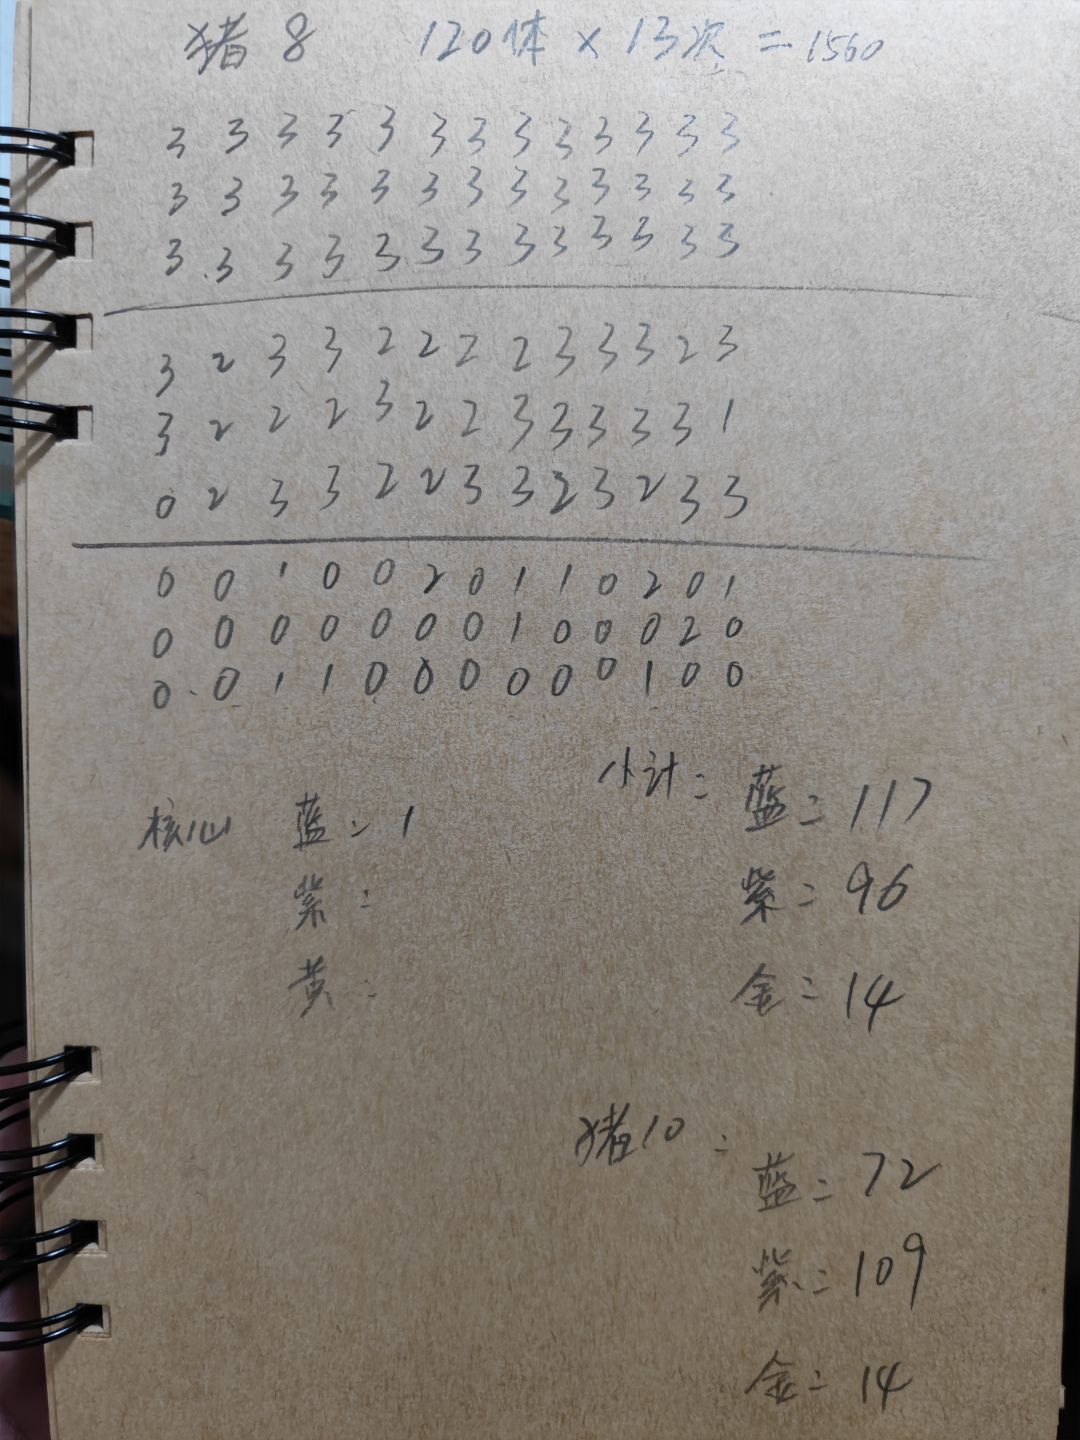 猪8 120体×13次=1560
3 3 3 3 3 3 3 3 3 3 3 3 3
3 3 3 3 3 3 3 3 3 3 3 3 3
3 3 3 3 3 3 3 3 3 3 3 3 3
3 2 3 3 2 2 2 2 3 3 3 2 3
3 2 2 2 3 2 2 3 3 3 3 3 1
0 2 3 3 2 2 3 3 2 3 2 3 3
0 0 1 0 0 2 0 1 1 0 2 0 1
0 0 0 0 0 0 0 1 0 0 0 2 0
0 0 1 1 0 0 0 0 0 0 1 0 0
小计:
蓝:117
紫:96
金:14
核心 蓝:1
紫:
黄:
猪10:
蓝:72
紫:109
金:14